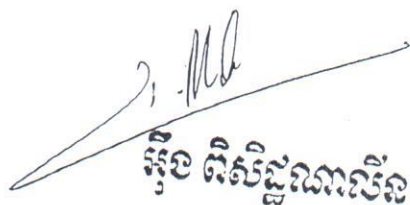 អ៊ឹង ពិសិដ្ឋណាលីន